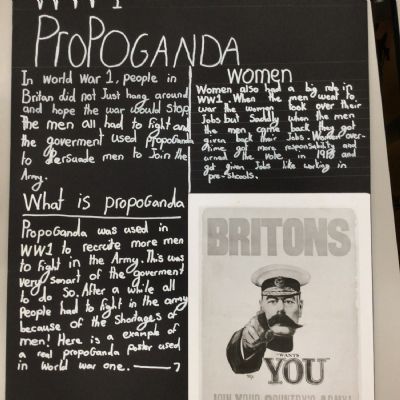 WW1
PROPOGANDA
In World War 1, people in
Britan did not Just hang around
and hope the war would stop
The men all had to fight and
the goverment used propoganda
to Persuade men to Join the
Army.
What is propoganda
Propoganda was used in
WW1 to recruite more men
to fight in the Army. This was
very smart of the goverment
to do so. After a while all
People had to fight in the army
because of the Shortages of
men! Here is a example of
a real propoganda poster used
in World war one.
women
Women also had a big role in
WW1. When the men went to
war the women took over their
Jobs but Saddly when the men
the men came back they got
given back their Jobs. Women over-
time got more responsability and
earned the vote in 1918 and
got given Jobs like working in
pre-schools.
BRITONS
"WANTS
YOU
JOIN YOUR COUNTRY'S ARMY!